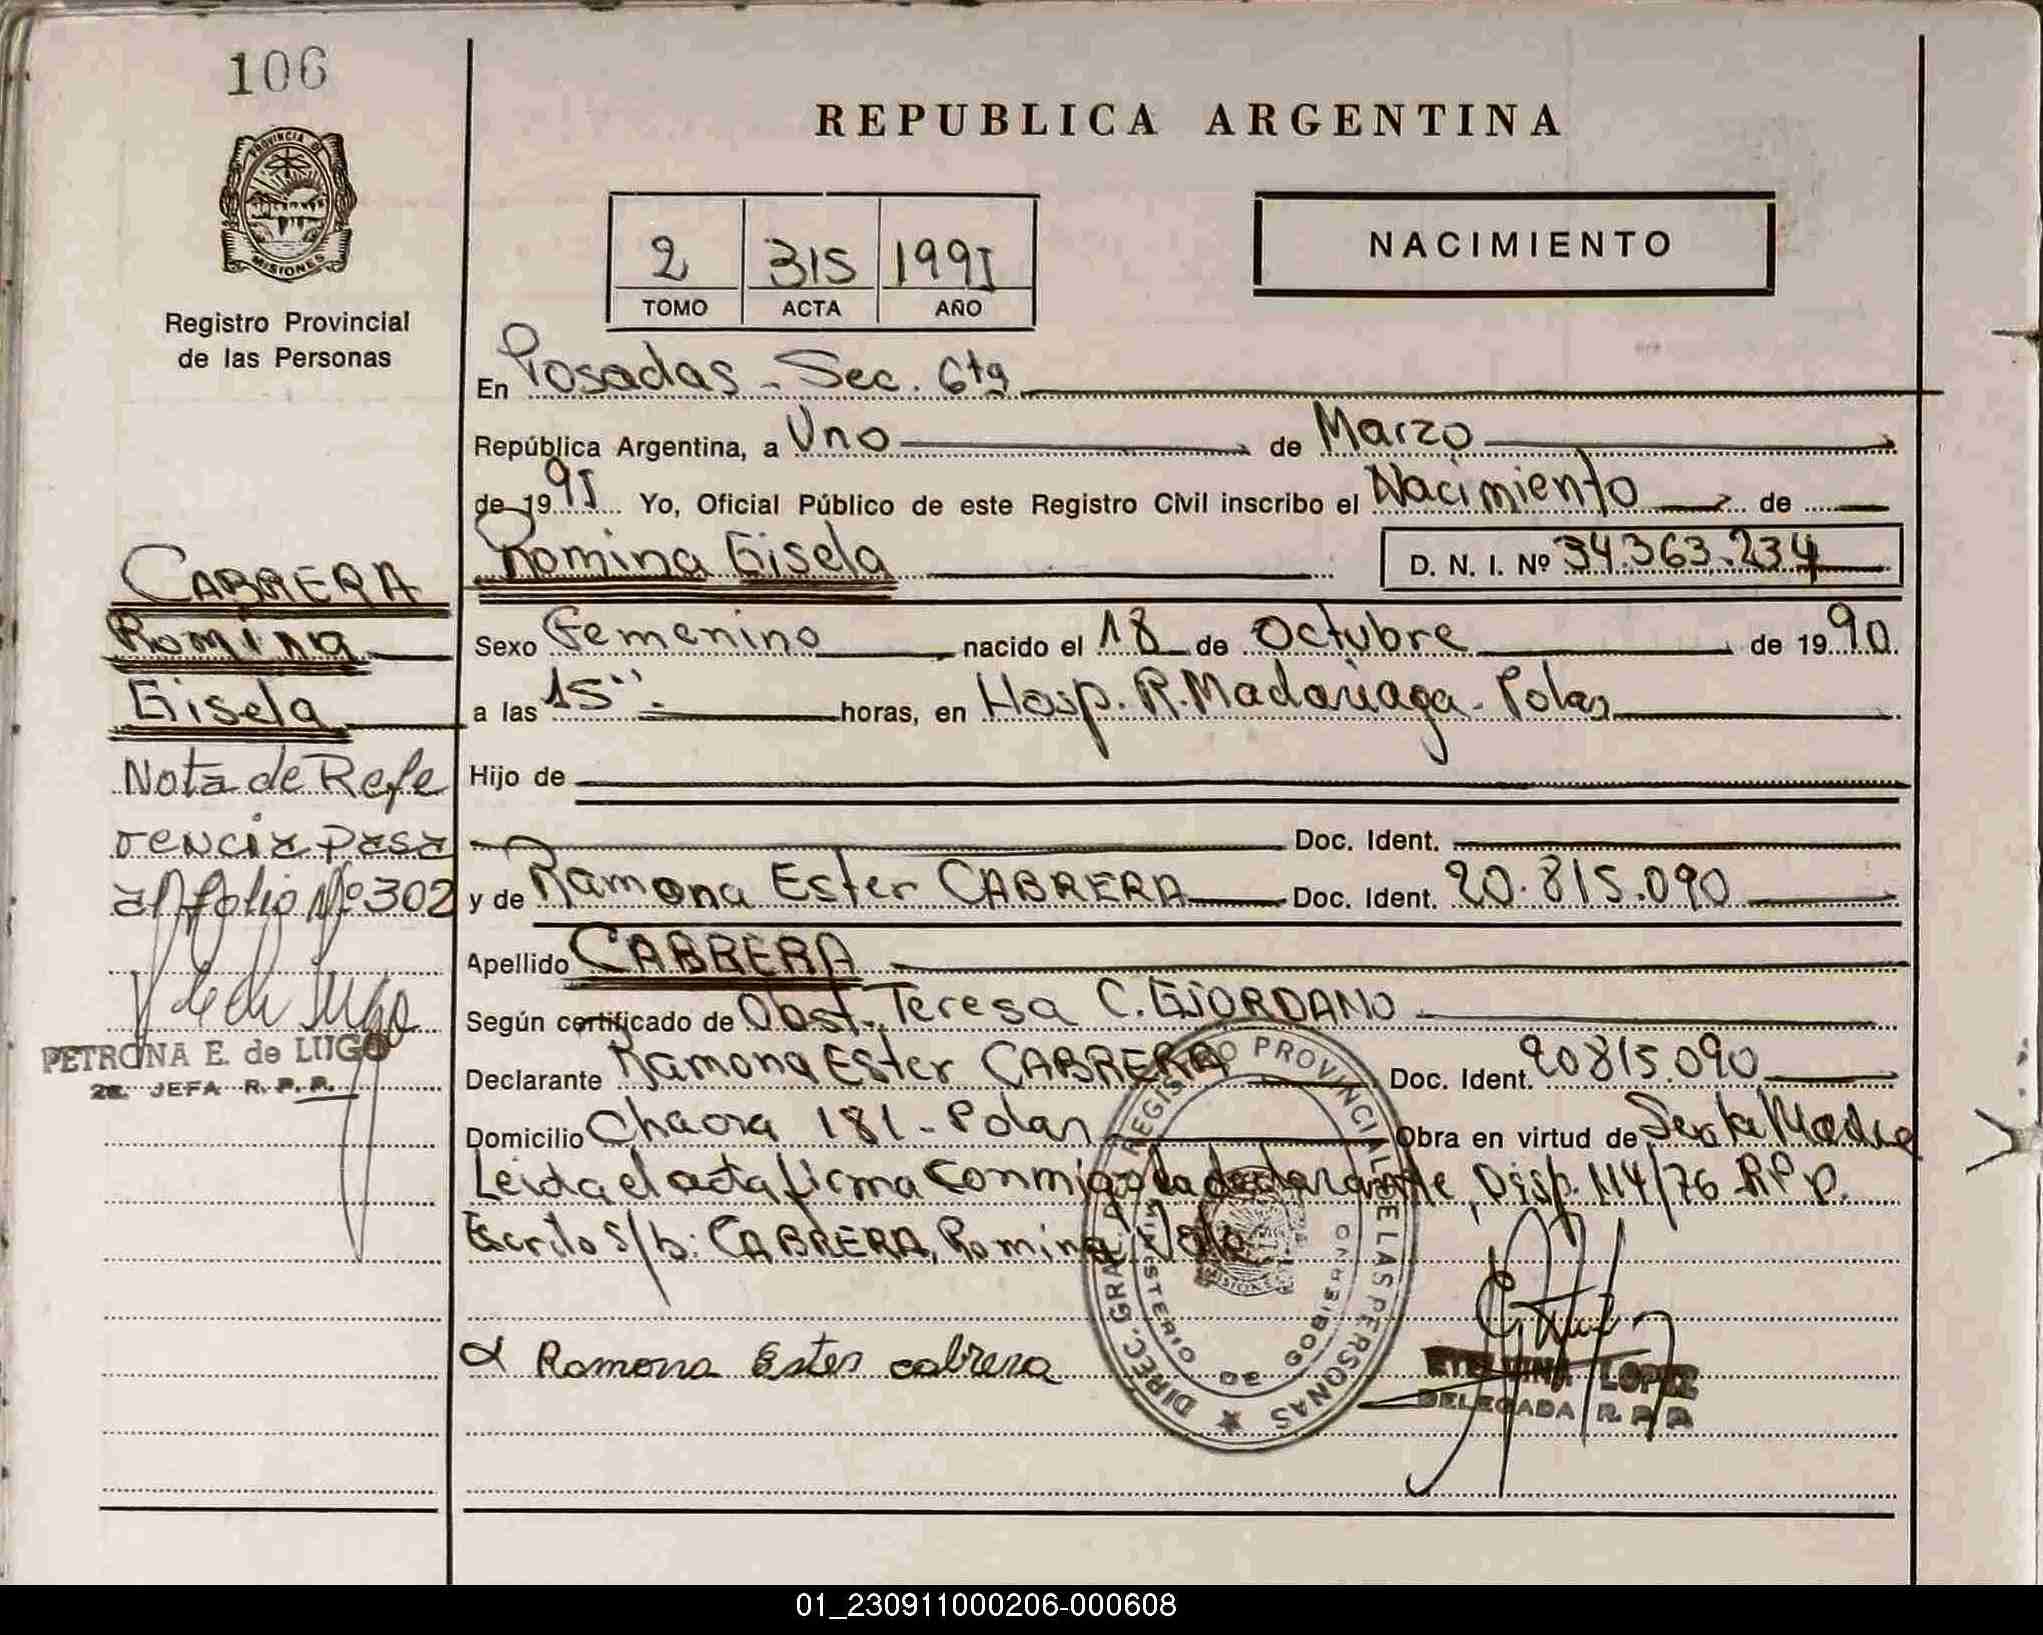 106
REPUBLICA ARGENTINA
PROVINCIA DE
MISIONES
Registro Provincial
de las Personas
2 315 1991
TOMO ACTA AÑO
NACIMIENTO
En Posadas - Sec. 6ta
República Argentina, a Uno de Marzo
de 1991 Yo, Oficial Público de este Registro Civil inscribo el Nacimiento de
Romina Gisela D. N. I. Nº 34.363.234
Sexo Femenino nacido el 18 de Octubre de 1990
a las 15 horas, en Hosp. R. Madariaga - Pdas
Hijo de
Doc. Ident.
y de Ramona Ester CABRERA Doc. Ident. 20.815.090
Apellido CABRERA
Según certificado de Obst. Teresa C. GIORDANO
Declarante Ramona Ester CABRERA Doc. Ident. 20815.090
Domicilio 181 - Pdas Obra en virtud de Madre
Leida el acta firma conmigo la declarante, Disp. 114/76 R.P.P.
Escrito s/b: CABRERA, Romina, Vale
Ramona Ester cabrera
CABRERA
Romina
Gisela
Nota de Refe
rencia pasa
al folio Nº 302
PETRONA E. de LUGO
2a. JEFA R. P. P.
DIREC. GRAL. REGISTRO PROVINCIAL DE LAS PERSONAS
MINISTERIO DE GOBIERNO
MISIONES
ETELVINA LOPEZ
DELEGADA R. P. P.
01_230911000206-000608